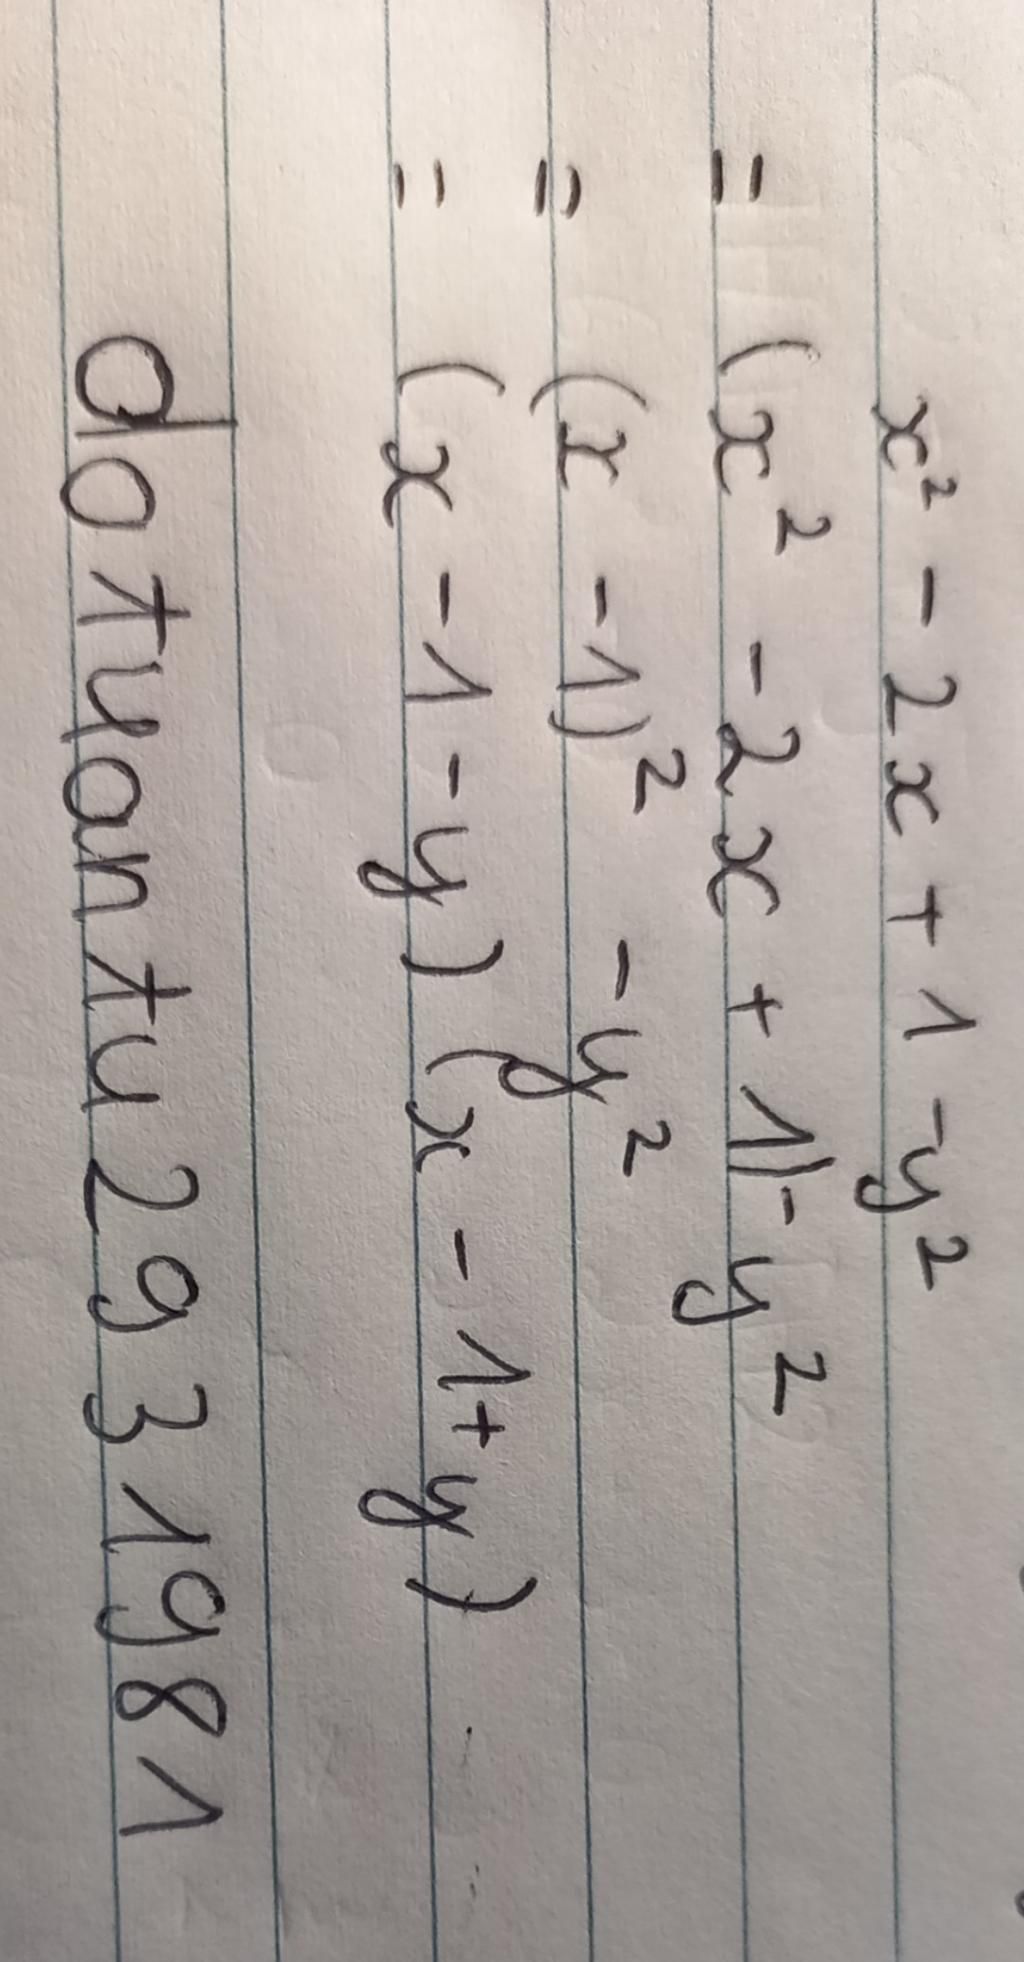 x² - 2x + 1 - y²
= (x² - 2x + 1) - y²
= (x - 1)² - y²
= (x - 1 - y) (x - 1 + y)
doтuɑnтu2931981